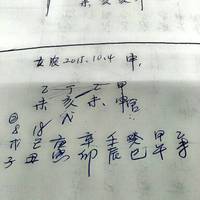 女农2015.10.4 申
乙 丁 乙 甲
未 亥 未 申
8 18
戊 己 庚 辛 壬 癸 甲 乙
子 丑 寅 卯 辰 巳 午 未